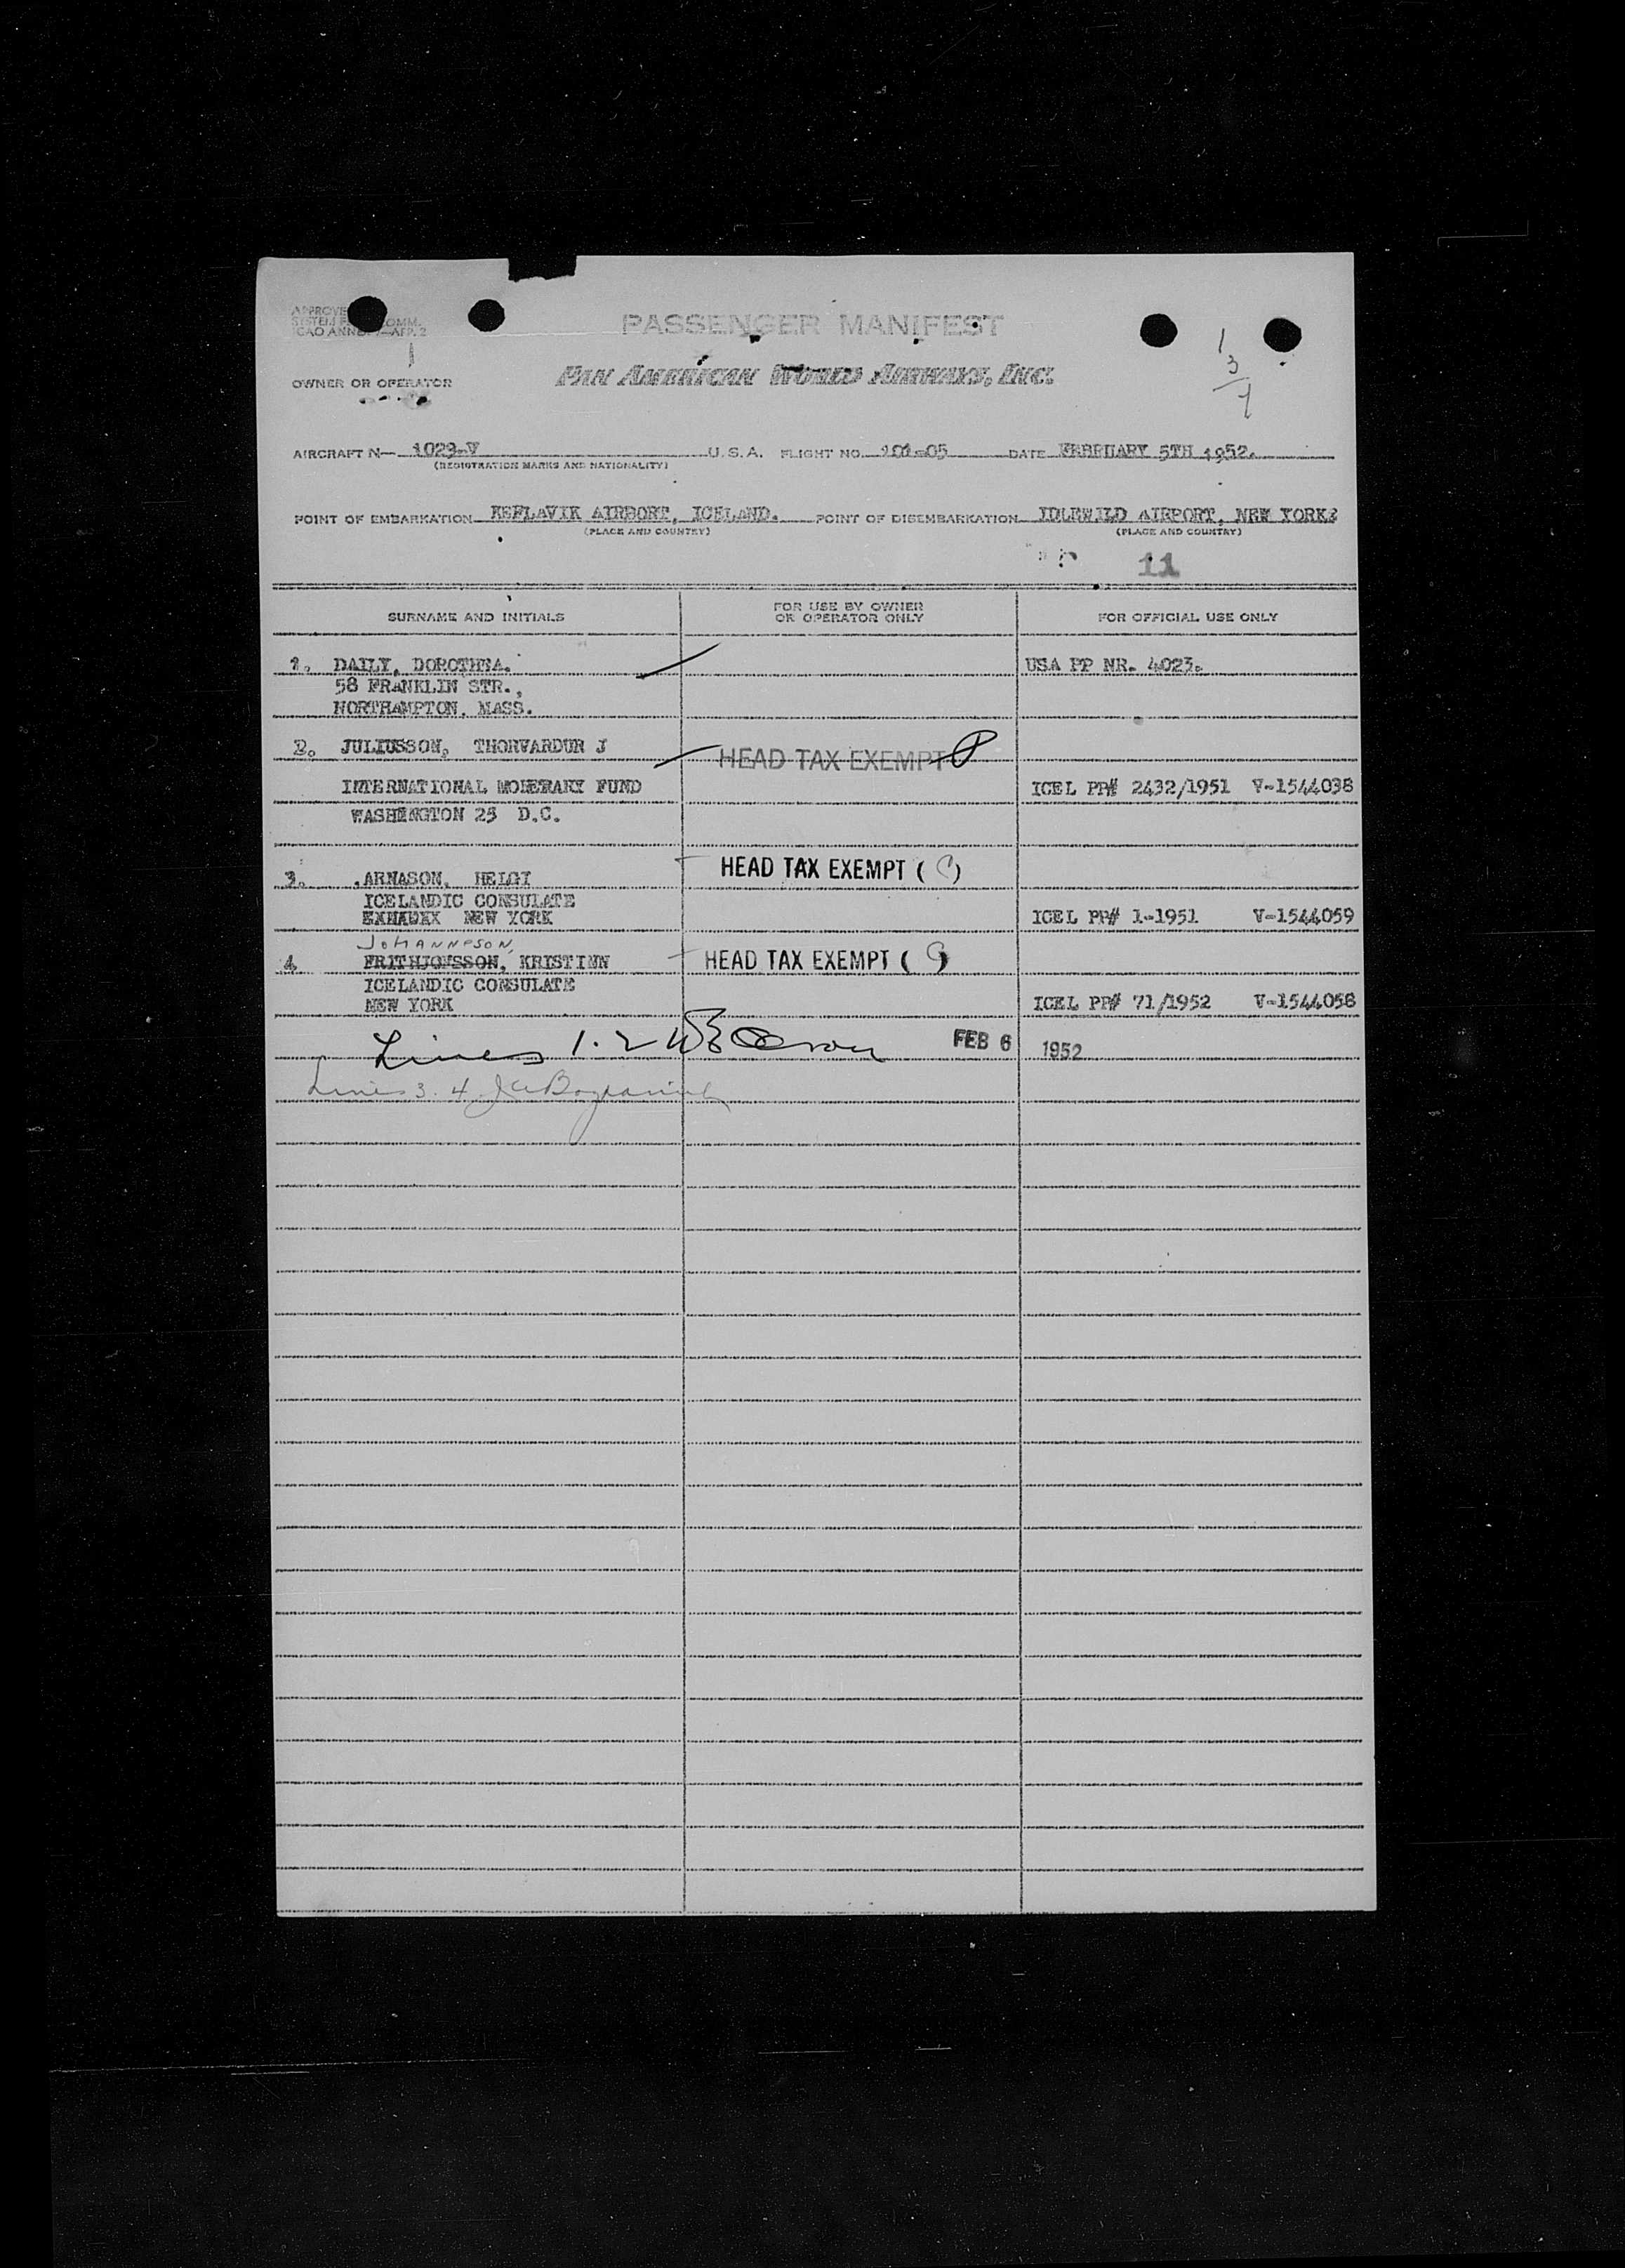 PASSENGER MANIFEST
OWNER OR OPERATOR
PAN AMERICAN WORLD AIRWAYS, INC.
1
3
7
AIRCRAFT N— 1029-V U.S.A. FLIGHT NO. 101-05 DATE FEBRUARY 5TH 1952.
(REGISTRATION MARKS AND NATIONALITY)
POINT OF EMBARKATION KEFLAVIK AIRPORT, ICELAND. POINT OF DISEMBARKATION IDLEWILD AIRPORT, NEW YORK
(PLACE AND COUNTRY) (PLACE AND COUNTRY)
11
SURNAME AND INITIALS
FOR USE BY OWNER
OR OPERATOR ONLY
FOR OFFICIAL USE ONLY
1. DAILY, DOROTHEA. USA PP NR. 4023.
58 FRANKLIN STR.,
NORTHAMPTON, MASS.
2. JULIUSSON, THORVARDUR J HEAD TAX EXEMPT P
INTERNATIONAL MONETARY FUND ICEL PP# 2432/1951 V-1544038
WASHINGTON 25 D.C.
3. ARNASON, HELGI HEAD TAX EXEMPT ( )
ICELANDIC CONSULATE
NEW YORK ICEL PP# 1-1951 V-1544059
JOHANNESSON,
4 FRITHJOFSSON, KRISTINN HEAD TAX EXEMPT ( )
ICELANDIC CONSULATE
NEW YORK ICEL PP# 71/1952 V-1544058
Lines 1-2 FEB 6 1952
Lines 3. 4.